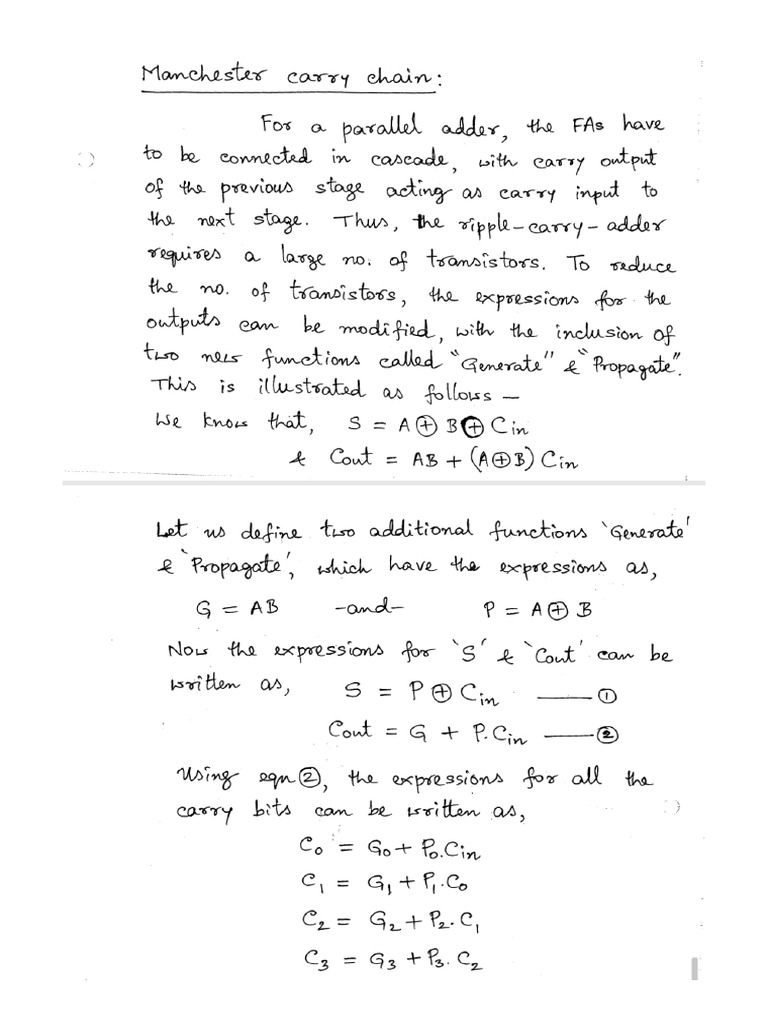 Manchester carry chain:
For a parallel adder, the FAs have
to be connected in cascade, with carry output
of the previous stage acting as carry input to
the next stage. Thus, the ripple-carry-adder
requires a large no. of transistors. To reduce
the no. of transistors, the expressions for the
outputs can be modified, with the inclusion of
two new functions called "Generate" & "Propagate".
This is illustrated as follows —
We know that, S = A ⊕ B ⊕ Cin
& Cout = AB + (A⊕B) Cin
Let us define two additional functions 'Generate'
& 'Propagate', which have the expressions as,
G = AB -and- P = A ⊕ B
Now the expressions for 'S' & 'Cout' can be
written as, S = P ⊕ Cin —— ①
Cout = G + P.Cin —— ②
Using eqn ②, the expressions for all the
carry bits can be written as,
C0 = G0 + P0.Cin
C1 = G1 + P1.C0
C2 = G2 + P2.C1
C3 = G3 + P3.C2